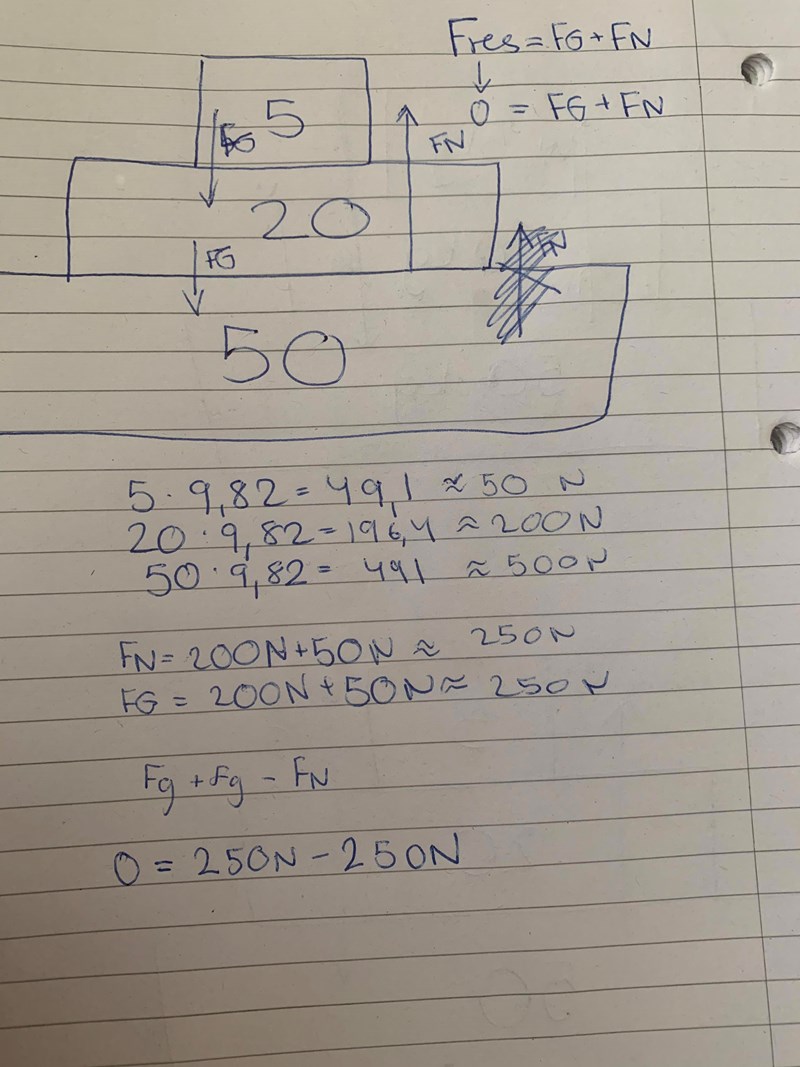 Fres = FG + FN
↓
0 = FG + FN
5
FG
FN
20
FG
50
5 · 9,82 = 49,1 ≈ 50 N
20 · 9,82 = 196,4 ≈ 200N
50 · 9,82 = 491 ≈ 500N
FN = 200N + 50N ≈ 250N
FG = 200N + 50N ≈ 250N
Fg + Fg - FN
0 = 250N - 250N